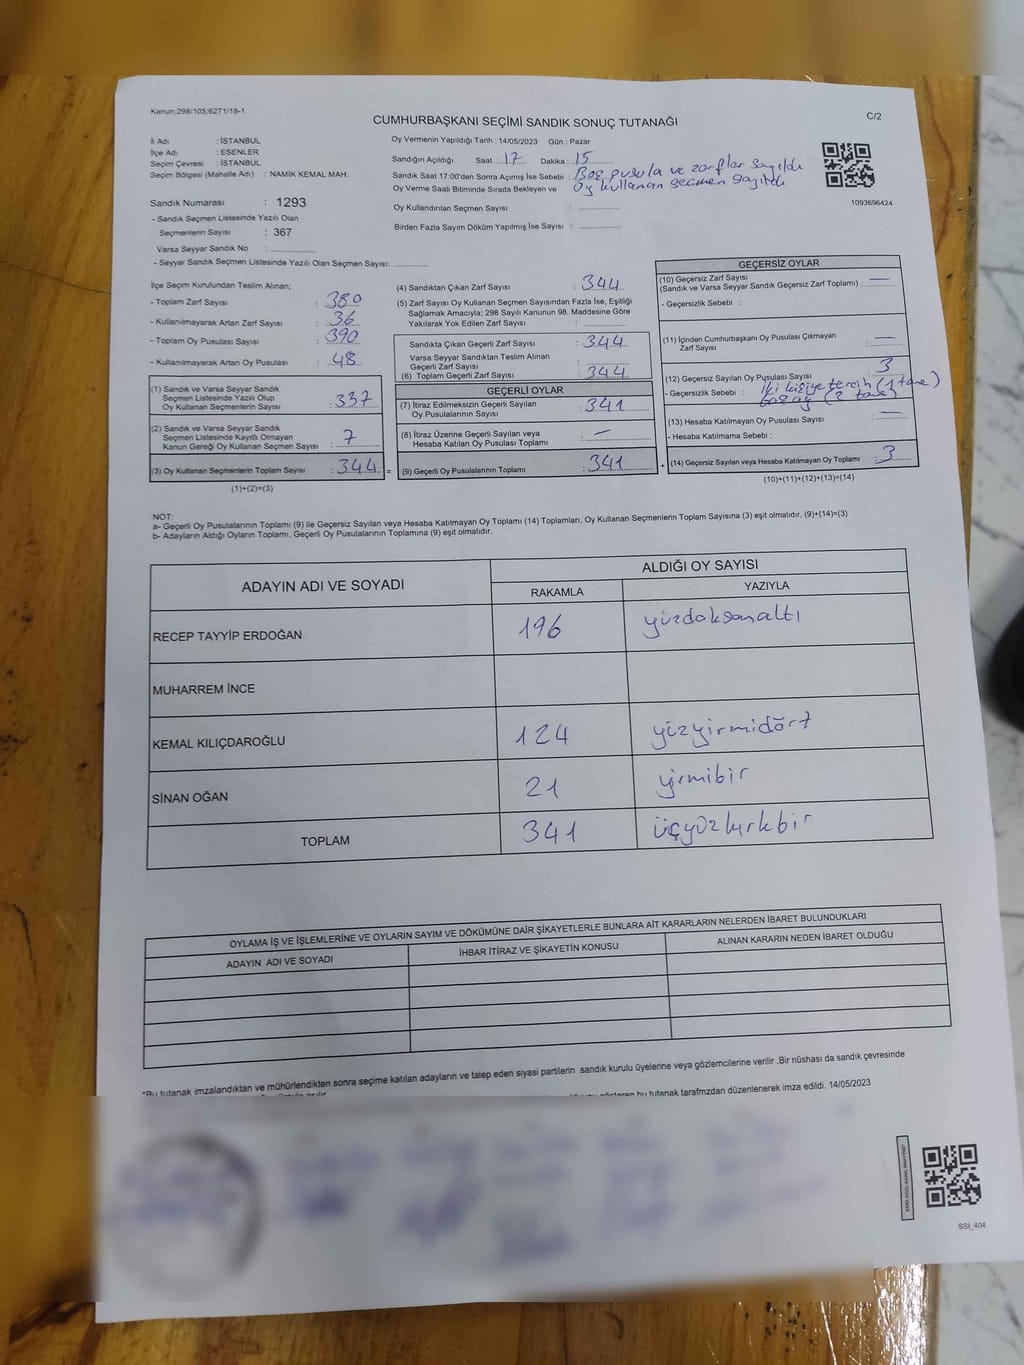 Kanun;298/105;6271/18-1
CUMHURBAŞKANI SEÇİMİ SANDIK SONUÇ TUTANAĞI
C/2
İl Adı : İSTANBUL
İlçe Adı : ESENLER
Seçim Çevresi : İSTANBUL
Seçim Bölgesi (Mahalle Adı) : NAMIK KEMAL MAH.
Sandık Numarası : 1293
- Sandık Seçmen Listesinde Yazılı Olan
Seçmenlerin Sayısı : 367
Varsa Seyyar Sandık No :
- Seyyar Sandık Seçmen Listesinde Yazılı Olan Seçmen Sayısı:
Oy Vermenin Yapıldığı Tarih : 14/05/2023 Gün : Pazar
Sandığın Açıldığı Saat : 17 Dakika : 15
Sandık Saat 17:00'den Sonra Açımış İse Sebebi : Boş pusula ve zarflar sayıldı
Oy Verme Saati Bitiminde Sırada Bekleyen ve Oy kullanan seçmen sayıldı
Oy Kullandırılan Seçmen Sayısı :
Birden Fazla Sayım Döküm Yapılmış İse Sayısı :
1093696424
İlçe Seçim Kurulundan Teslim Alınan;
- Toplam Zarf Sayısı : 380
- Kullanılmayarak Artan Zarf Sayısı : 36
- Toplam Oy Pusulası Sayısı : 390
- Kullanılmayarak Artan Oy Pusulası : 48
(1) Sandık ve Varsa Seyyar Sandık
Seçmen Listesinde Yazılı Olup
Oy Kullanan Seçmenlerin Sayısı : 337
(2) Sandık ve Varsa Seyyar Sandık
Seçmen Listesinde Kayıtlı Olmayan
Kanun Gereği Oy Kullanan Seçmen Sayısı : 7
(3) Oy Kullanan Seçmenlerin Toplam Sayısı : 344 =
(1)+(2)=(3)
(4) Sandıktan Çıkan Zarf Sayısı : 344
(5) Zarf Sayısı Oy Kullanan Seçmen Sayısından Fazla İse, Eşitliği
Sağlamak Amacıyla; 298 Sayılı Kanunun 98. Maddesine Göre
Yakılarak Yok Edilen Zarf Sayısı :
Sandıkta Çıkan Geçerli Zarf Sayısı : 344
Varsa Seyyar Sandıktan Teslim Alınan
Geçerli Zarf Sayısı :
(6) Toplam Geçerli Zarf Sayısı : 344
GEÇERLİ OYLAR
(7) İtiraz Edilmeksizin Geçerli Sayılan
Oy Pusulalarının Sayısı : 341
(8) İtiraz Üzerine Geçerli Sayılan veya
Hesaba Katılan Oy Pusulası Toplamı : —
(9) Geçerli Oy Pusulalarının Toplamı : 341 +
GEÇERSİZ OYLAR
(10) Geçersiz Zarf Sayısı
(Sandık ve Varsa Seyyar Sandık Geçersiz Zarf Toplamı) : —
- Geçersizlik Sebebi :
(11) İçinden Cumhurbaşkanı Oy Pusulası Çıkmayan
Zarf Sayısı : —
(12) Geçersiz Sayılan Oy Pusulası Sayısı : 3
- Geçersizlik Sebebi : İki kişiye tercih (1 tane)
(2 tane)
(13) Hesaba Katılmayan Oy Pusulası Sayısı : —
- Hesaba Katılmama Sebebi :
(14) Geçersiz Sayılan veya Hesaba Katılmayan Oy Toplamı : 3
(10)+(11)+(12)+(13)=(14)
NOT:
a- Geçerli Oy Pusulalarının Toplamı (9) ile Geçersiz Sayılan veya Hesaba Katılmayan Oy Toplamı (14) Toplamları, Oy Kullanan Seçmenlerin Toplam Sayısına (3) eşit olmalıdır. (9)+(14)=(3)
b- Adayların Aldığı Oyların Toplamı, Geçerli Oy Pusulalarının Toplamına (9) eşit olmalıdır.
ADAYIN ADI VE SOYADI
ALDIĞI OY SAYISI
RAKAMLA YAZIYLA
RECEP TAYYİP ERDOĞAN 196 yüzdoksanaltı
MUHARREM İNCE
KEMAL KILIÇDAROĞLU 124 yüzyirmidört
SİNAN OĞAN 21 yirmibir
TOPLAM 341 üçyüzkırkbir
OYLAMA İŞ VE İŞLEMLERİNE VE OYLARIN SAYIM VE DÖKÜMÜNE DAİR ŞİKAYETLERLE BUNLARA AİT KARARLARIN NELERDEN İBARET BULUNDUKLARI
ADAYIN ADI VE SOYADI İHBAR İTİRAZ VE ŞİKAYETİN KONUSU ALINAN KARARIN NEDEN İBARET OLDUĞU
*Bu tutanak imzalandıktan ve mühürlendikten sonra seçime katılan adayların ve talep eden siyasi partilerin sandık kurulu üyelerine veya gözlemcilerine verilir .Bir nüshası da sandık çevresinde
gösteren bu tutanak tarafımızdan düzenlenerek imza edildi. 14/05/2023
SSI_404